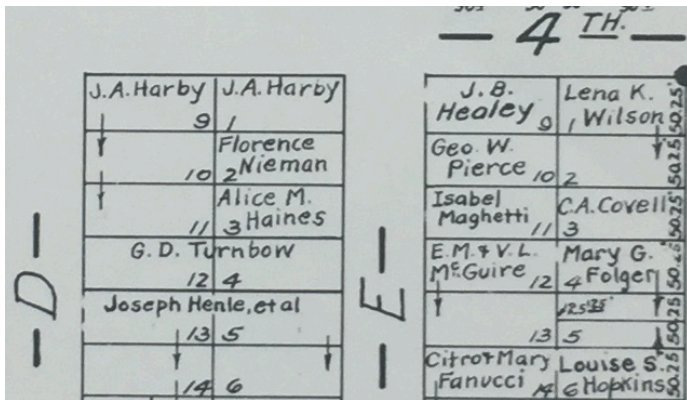 4 TH.
J.A.Harby J.A.Harby
9 1
Florence
10 2 Nieman
Alice M.
11 3 Haines
G. D. Turnbow
12 4
Joseph Henle, et al
13 5
14 6
D
E
J. B.
Healey 9
Lena K.
1 Wilson
50.25'
Geo. W.
Pierce 10
2
50.25
Isabel
Maghetti 11
C.A. Covell
3
50.25'
E.M. & V.L.
McGuire 12
Mary G.
4 Folger
50.25
13 5
50.25
Citro & Mary
Fanucci 14
Louise S.
6 Hopkins
50.25